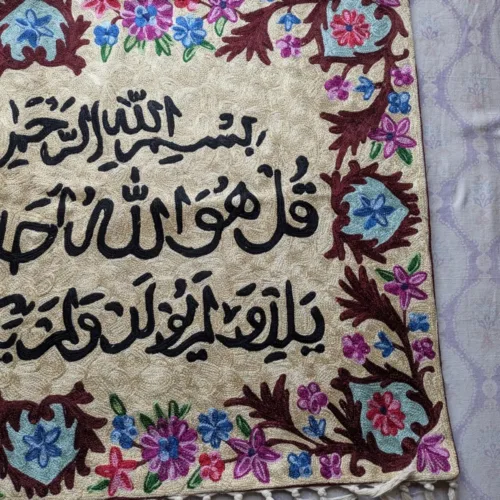 بِسْمِ اللّٰهِ الرَّحْمٰ
قُلْ هُوَ اللّٰهُ اَحَد
يَلِدْ وَلَمْ يُوْلَدْ وَلَمْ يَ